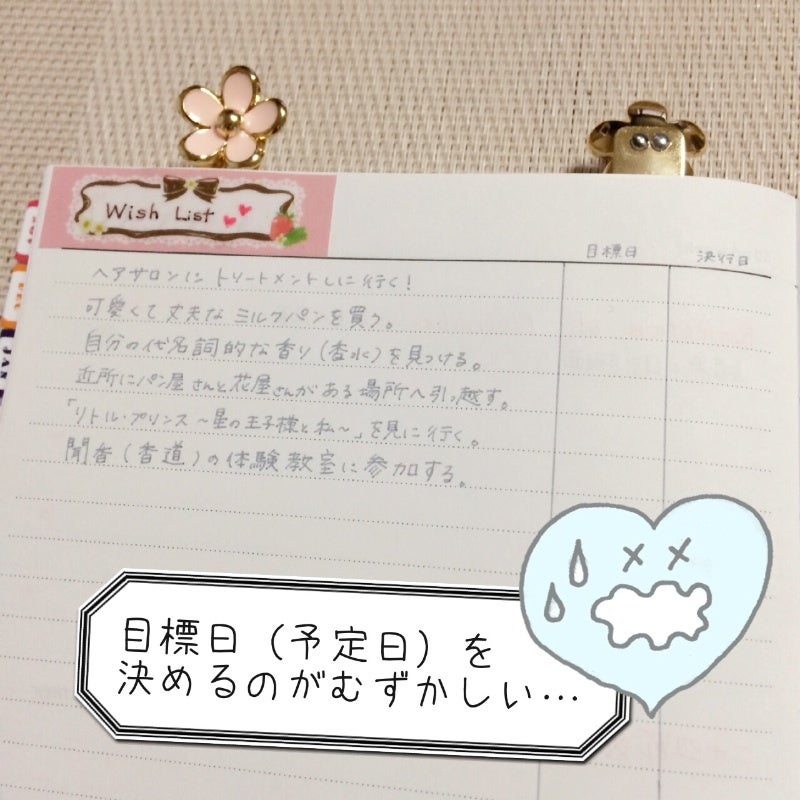 Wish List
目標日
決行日
ヘアサロンにトリートメントしに行く!
可愛くて丈夫なミルクパンを買う。
自分の代名詞的な香り(香水)を見つける。
近所にパン屋さんと花屋さんがある場所へ引っ越す。
「リトル・プリンス ～星の王子様と私～」を見に行く。
聞香(香道)の体験教室に参加する。
JAN
目標日（予定日）を
決めるのがむずかしい…